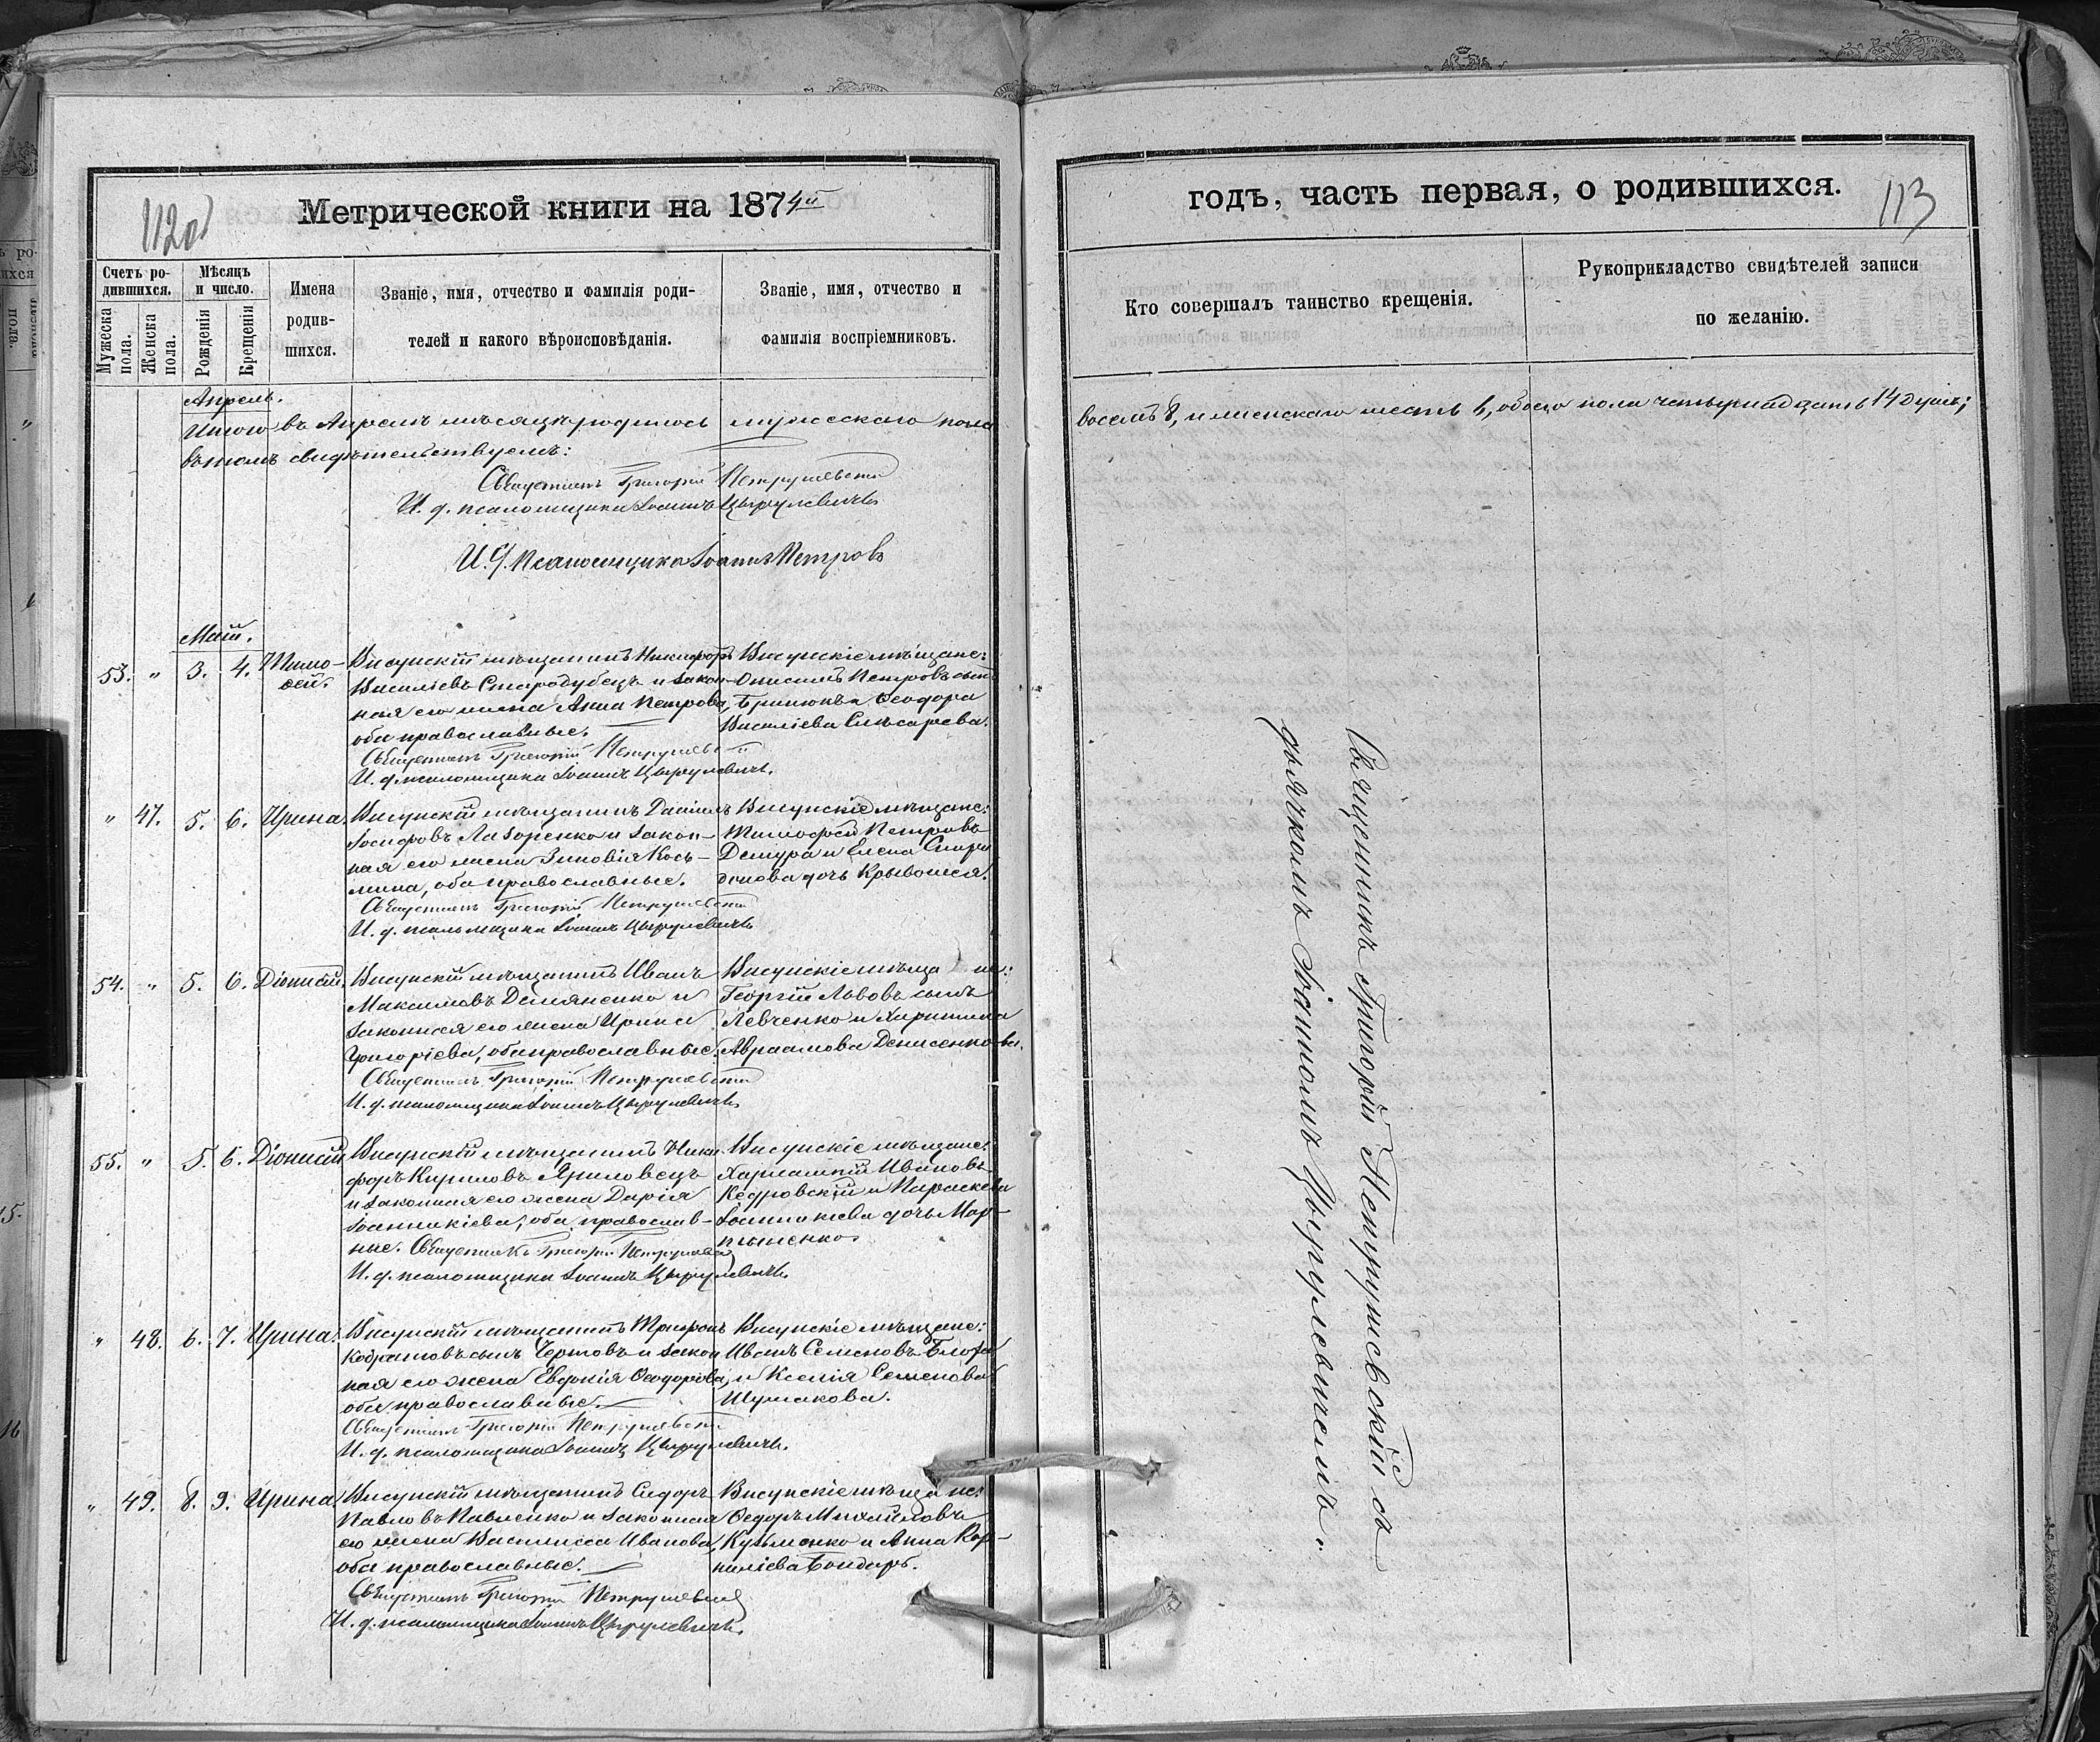 112об
Метрической книги на 1874й
годъ, часть первая, о родившихся.
113
Счетъ ро-
дившихся.
Мужеска пола.
Женска пола.
Мѣсяцъ
и число.
Рожденія
Крещенія
Имена
родив-
шихся.
Званіе, имя, отчество и фамилія роди-
телей и какого вѣроисповѣданія.
Званіе, имя, отчество и
фамилія воспріемниковъ.
Кто совершалъ таинство крещенія.
Рукоприкладство свидѣтелей записи
по желанію.
Апрель.
Итого въ Апрелѣ мѣсяцѣ родилось мужескаго пола
восемь 8, и женскаго шесть 6, обоего пола четырнадцать 14 душъ;
въ томъ свидѣтельствуемъ:
Священникъ Григорій Петрушевскій
И. д. псаломщика Іоаннъ Цырулевичъ
И. д. Псаломщика Іоаннъ Петровъ
Май.
53. " 3. 4. Тимо-
фей.
Висунскій мѣщанинъ Никифоръ
Василіевъ Стародубецъ и закон-
ная его жена Анна Петрова,
оба православные.
Висунскіе мѣщане:
Онисимъ Петровъ сынъ
Василіева Слѣсарева.
Священникъ Григорій Петрушевскій
И. д. псаломщика Іоаннъ Цырулевичъ.
" 47. 5. 6. Ирина.
Висунскій мѣщанинъ Даніилъ
Іосифовъ Лазоренко и закон-
ная его жена Зиновія Кось-
мина, оба православные.
Висунскіе мѣщане:
Тимофей Петровъ
Демура и Елена Спири
донова дочь Крывошея.
Священникъ Григорій Петрушевскій
И. д. псаломщика Іоаннъ Цырулевичъ
54. " 5. 6. Діонисій.
Висунскій мѣщанинъ Иванъ
Максимовъ Демяненко и
законная его жена Ирина
Григоріева, оба православные.
Висунскіе мѣща не:
Георгій Львовъ сынъ
Левченко и Харитина
Авраамова Денисенкова.
Священникъ Григорій Петрушевскій
И. д. псаломщика Іоаннъ Цырулевичъ
55. " 5. 6. Діонисій
Висунскій мѣщанинъ Ники
форъ Кириловъ Яриловецъ
и законная его жена Дарія
Іоанникіева, оба православ-
ные.
Висунскіе мѣщане:
Харлампій Ивановъ
Кедровскій и Параскева
Іоанникіева дочь Мар-
тыненко
Священникъ Григорій Петрушевскій
И. д. псаломщика Іоаннъ Цырулевичъ.
" 48. 6. 7. Ирина.
Висунскій мѣщанинъ Трифонъ
Кодратовъ сынъ Чертовъ и закон
ная его жена Евдокія Ѳеодорова,
оба православные.
Висунскіе мѣщане:
Иванъ Семеновъ
и Ксенія Семенова
Шумакова.
Священникъ Григорій Петрушевскій
И. д. псаломщика Іоаннъ Цырулевичъ.
" 49. 8. 9. Ирина
Висунскій мѣщанинъ Сидоръ
Павловъ Павленко и законная
его жена Василисса Иванова,
оба православные.
Висунскіе мѣща не:
Ѳедоръ Михайловъ
Кузьменко и Анна Кор-
ниліева Бондарь.
Священникъ Григорій Петрушевскій
И. д. псаломщика Іоаннъ Цырулевичъ.
Священникъ Григорій Петрушевскій съ
дьячкомъ Іоанномъ Цырулевичемъ.